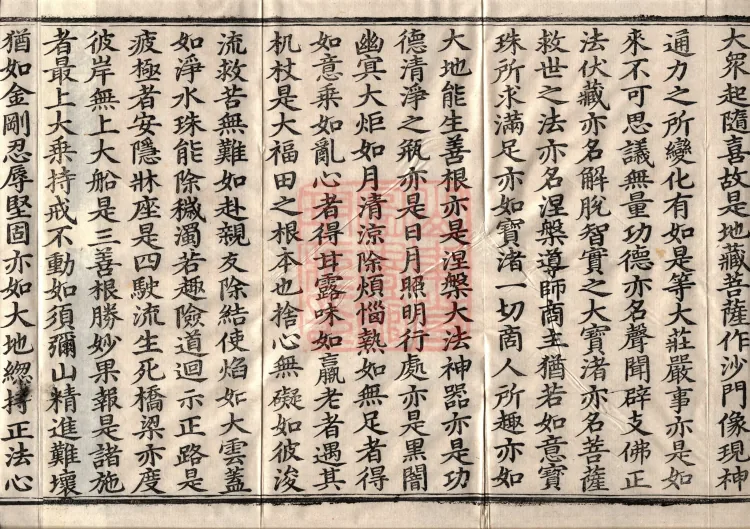 大眾起隨喜故是地藏菩薩作沙門像現神
通力之所變化有如是等大莊嚴事亦是如
來不可思議無量功德亦名聲聞辟支佛正
法伏藏亦名解脫智實之大寶渚亦名菩薩
救世之法亦名涅槃導師商主猶若如意寶
珠所求滿足亦如寶渚一切商人所趣亦如
大地能生善根亦是涅槃大法神器亦是功
德清淨之瓶亦是日月照明行處亦是黑闇
幽冥大炬如月清涼除煩惱熱如無足者得
如意乘如亂心者得甘露味如羸老者遇其
机杖是大福田之根本也捨心無礙如彼浚
流救苦無難如赴親友除結使焰如大雲蓋
如淨水珠能除穢濁若趣險道迴示正路是
疲極者安隱牀座是四駛流生死橋梁亦度
彼岸無上大船是三善根勝妙果報是諸施
者最上大乘持戒不動如須彌山精進難壞
猶如金剛忍辱堅固亦如大地緫持正法心